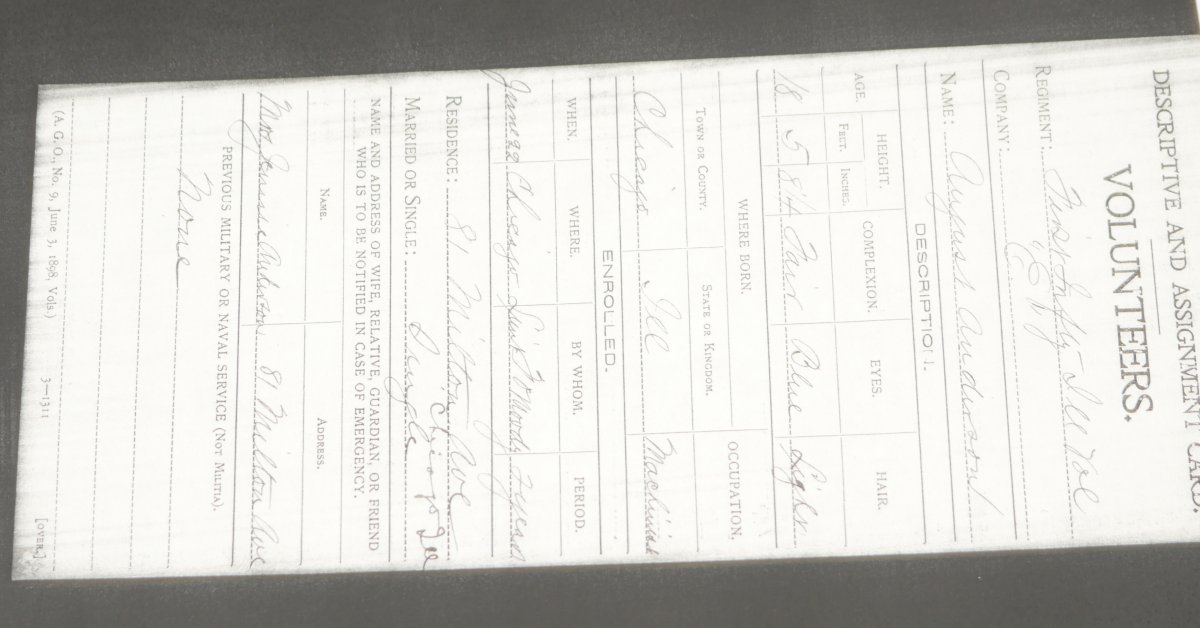 DESCRIPTIVE AND ASSIGNMENT CARD.
VOLUNTEERS.
REGIMENT: First Infty Ill Vol
COMPANY: "E"
NAME: August Anderson
DESCRIPTION.
AGE. HEIGHT. COMPLEXION. EYES. HAIR.
FEET. INCHES.
18 5 8¼ Fair Blue Light
WHERE BORN. OCCUPATION.
TOWN OR COUNTY. STATE OR KINGDOM.
Chicago Ill Machinist
ENROLLED.
WHEN. WHERE. BY WHOM. PERIOD.
June 22 Chicago
RESIDENCE: 81 Milton Ave
Chicago Ill
MARRIED OR SINGLE: Single
NAME AND ADDRESS OF WIFE, RELATIVE, GUARDIAN, OR FRIEND
WHO IS TO BE NOTIFIED IN CASE OF EMERGENCY.
NAME. ADDRESS.
Anderson 81 Milton Ave
PREVIOUS MILITARY OR NAVAL SERVICE (NOT MILITIA).
None
(A. G. O., No. 9, June 3, 1898, Vols.) 3—1311 [OVER.]